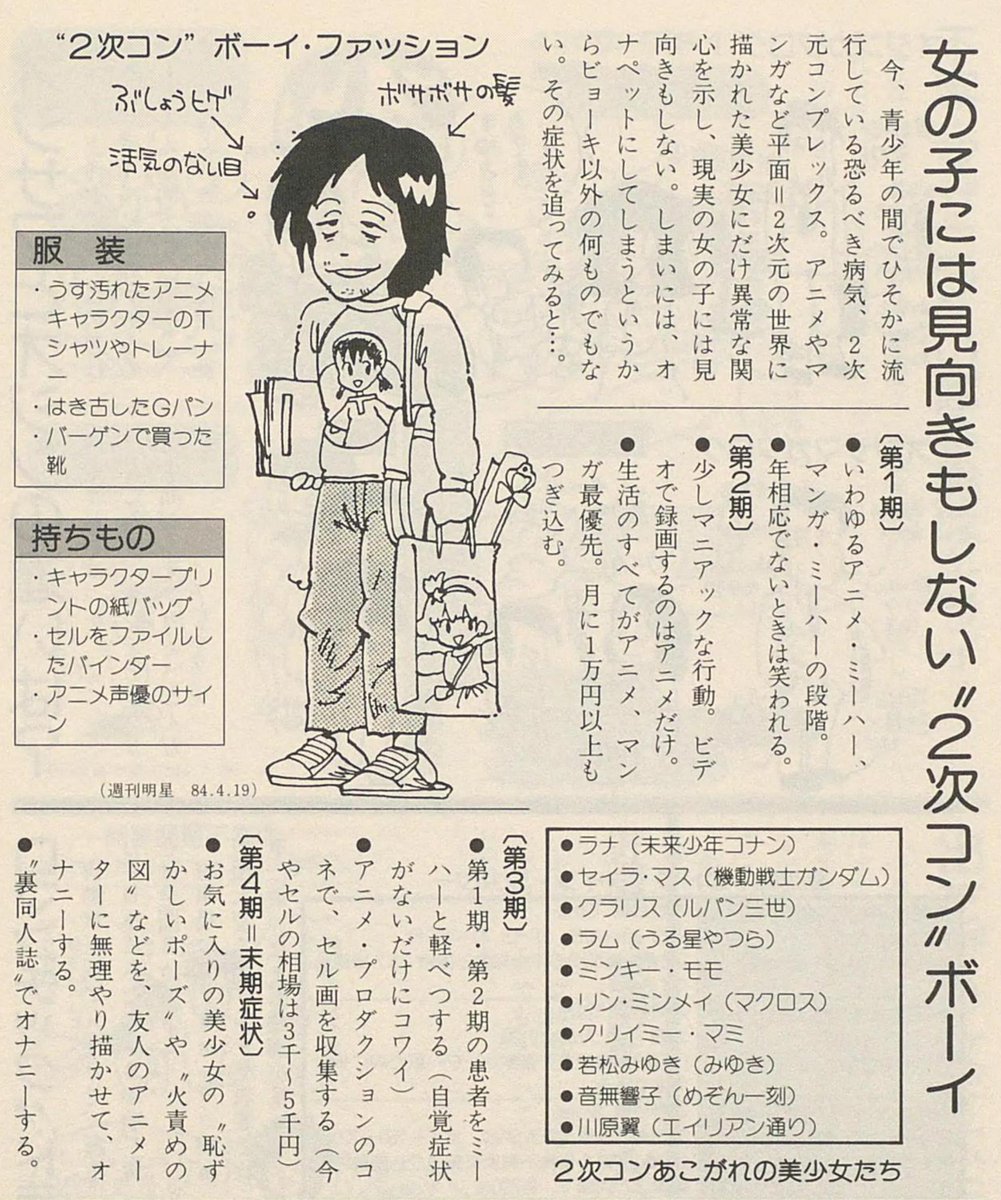 女の子には見向きもしない〝2次コン〟ボーイ
今、青少年の間でひそかに流
行している恐るべき病気、2次
元コンプレックス。アニメやマ
ンガなど平面＝2次元の世界に
描かれた美少女にだけ異常な関
心を示し、現実の女の子には見
向きもしない。しまいには、オ
ナペットにしてしまうというか
らビョーキ以外の何ものでもな
い。その症状を追ってみると…。
〔第1期〕
●いわゆるアニメ・ミーハー、
マンガ・ミーハーの段階。
●年相応でないときは笑われる。
〔第2期〕
●少しマニアックな行動。ビデ
オで録画するのはアニメだけ。
●生活のすべてがアニメ、マン
ガ最優先。月に1万円以上も
つぎ込む。
“2次コン”ボーイ・ファッション
ボサボサの髪
ぶしょうヒゲ
活気のない目
服 装
・うす汚れたアニメ
キャラクターのT
シャツやトレーナ
ー
・はき古したGパン
・バーゲンで買った
靴
持ちもの
・キャラクタープリ
ントの紙バッグ
・セルをファイルし
たバインダー
・アニメ声優のサイ
ン
（週刊明星 84.4.19）
●ラナ（未来少年コナン）
●セイラ・マス（機動戦士ガンダム）
●クラリス（ルパン三世）
●ラム（うる星やつら）
●ミンキー・モモ
●リン・ミンメイ（マクロス）
●クリィミー・マミ
●若松みゆき（みゆき）
●音無響子（めぞん一刻）
●川原翼（エイリアン通り）
2次コンあこがれの美少女たち
〔第3期〕
●第1期・第2期の患者をミー
ハーと軽べつする（自覚症状
がないだけにコワイ）
●アニメ・プロダクションのコ
ネで、セル画を収集する（今
やセルの相場は3千〜5千円）
〔第4期＝末期症状〕
●お気に入りの美少女の〝恥ず
かしいポーズ〟や〝火責めの
図〟などを、友人のアニメー
ターに無理やり描かせて、オ
ナニーする。
●〝裏同人誌〟でオナニーする。